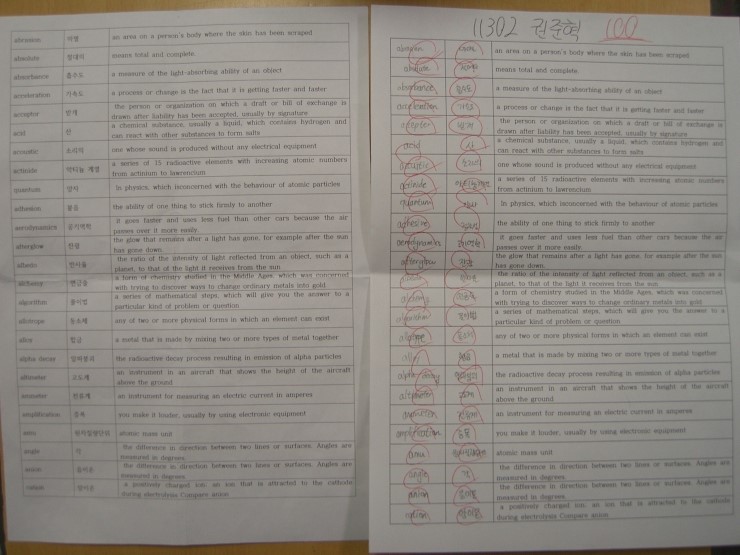 abrasion 마멸 an area on a person's body where the skin has been scraped
absolute 절대의 means total and complete.
absorbance 흡수도 a measure of the light-absorbing ability of an object
acceleration 가속도 a process or change is the fact that it is getting faster and faster
acceptor 받개 the person or organization on which a draft or bill of exchange is
drawn after liability has been accepted, usually by signature
acid 산 a chemical substance, usually a liquid, which contains hydrogen and
can react with other substances to form salts
acoustic 소리의 one whose sound is produced without any electrical equipment
actinide 악티늄 계열 a series of 15 radioactive elements with increasing atomic numbers
from actinium to lawrencium
quantum 양자 In physics, which isconcerned with the behaviour of atomic particles
adhesion 붙음 the ability of one thing to stick firmly to another
aerodynamics 공기역학 it goes faster and uses less fuel than other cars because the air
passes over it more easily.
afterglow 잔광 the glow that remains after a light has gone, for example after the sun
has gone down.
albedo the ratio of the intensity of light reflected from an object, such as a
planet, to that of the light it receives from the sun.
alchemy 연금술 a form of chemistry studied in the Middle Ages, which was concerned
with trying to discover ways to change ordinary metals into gold
algorithm 풀이법 a series of mathematical steps, which will give you the answer to a
particular kind of problem or question
allotrope 동소체 any of two or more physical forms in which an element can exist
alloy 합금 a metal that is made by mixing two or more types of metal together
alpha decay 알파붕괴 the radioactive decay process resulting in emission of alpha particles
altimeter 고도계 an instrument in an aircraft that shows the height of the aircraft
above the ground
ammeter 전류계 an instrument for measuring an electric current in amperes
amplification 증폭 you make it louder, usually by using electronic equipment
amu 원자질량단위 atomic mass unit
angle 각 the difference in direction between two lines or surfaces. Angles are
measured in degrees.
anion 음이온 the difference in direction between two lines or surfaces. Angles are
measured in degrees.
cation 양이온 a positively charged ion: an ion, that is attracted to the cathode
during electrolysis Compare anion
11302 권준혁 100
an area on a person's body where the skin has been scraped
absolute means total and complete.
absorbance 흡수도 a measure of the light-absorbing ability of an object
acceleration 가속도 a process or change is the fact that it is getting faster and faster
acceptor 받개 the person or organization on which a draft or bill of exchange is
drawn after liability has been accepted, usually by signature
acid 산 a chemical substance, usually a liquid, which contains hydrogen and
can react with other substances to form salts
acoustic 소리의 one whose sound is produced without any electrical equipment
actinide a series of 15 radioactive elements with increasing atomic numbers
from actinium to lawrencium
quantum 양자 In physics, which isconcerned with the behaviour of atomic particles
the ability of one thing to stick firmly to another
aerodynamics 공기역학 it goes faster and uses less fuel than other cars because the air
passes over it more easily.
afterglow 잔광 the glow that remains after a light has gone, for example after the sun
has gone down.
the ratio of the intensity of light reflected from an object, such as a
planet, to that of the light it receives from the sun.
연금술 a form of chemistry studied in the Middle Ages, which was concerned
with trying to discover ways to change ordinary metals into gold
algorithm 풀이법 a series of mathematical steps, which will give you the answer to a
particular kind of problem or question
any of two or more physical forms in which an element can exist
alloy 합금 a metal that is made by mixing two or more types of metal together
alpha decay 알파붕괴 the radioactive decay process resulting in emission of alpha particles
고도계 an instrument in an aircraft that shows the height of the aircraft
above the ground
전류계 an instrument for measuring an electric current in amperes
amplification 증폭 you make it louder, usually by using electronic equipment
amu atomic mass unit
angle 각 the difference in direction between two lines or surfaces. Angles are
measured in degrees.
anion 음이온 the difference in direction between two lines or surfaces. Angles are
measured in degrees.
cation 양이온 a positively charged ion: an ion, that is attracted to the cathode
during electrolysis Compare anion